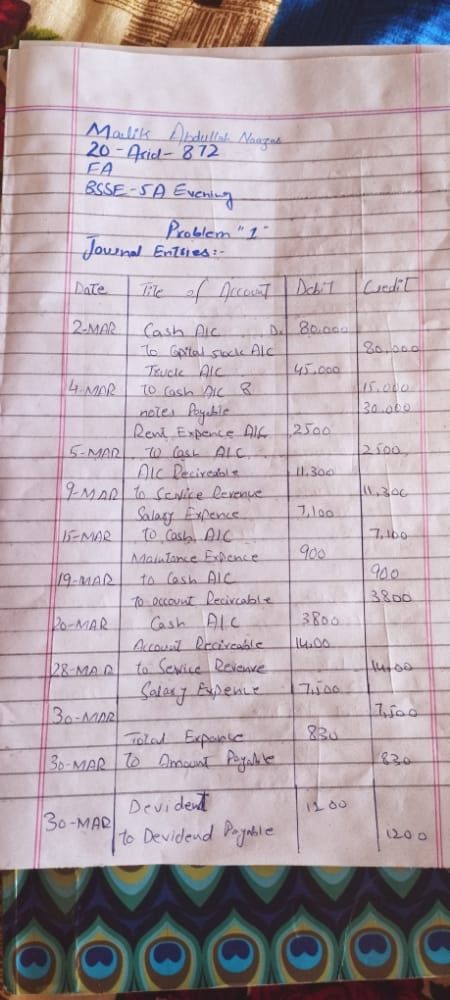 Malik Abdullah Naazar
20-Arid-872
FA
BSSE-5A Evening
Problem "1"
Journal Entries:-
Date Tile of Account Debit Credit
2-MAR Cash A/C D. 80,000
To Capital stock A/C 80,000
Truck A/C 45,000
4-MAR To Cash A/C & 15,000
notes Payable 30,000
Rent Expence A/C 2500
5-MAR To Cash A/C 2500
A/C Recireable 11,300
9-MAR to Service Revenue 11,300
Salary Expence 7,100
15-MAR to Cash A/C 7,100
Maintance Expence 900
19-MAR to Cash A/C 900
to account Recireable 3800
20-MAR Cash A/C 3800
Account Recireable 14,00
28-MAR to Service Revenue 14,00
Salary Expence 7,500
30-MAR 7,500
Total Expance 830
30-MAR to Amount Payable 830
Devident 1200
30-MAR to Devidend Payable 1200